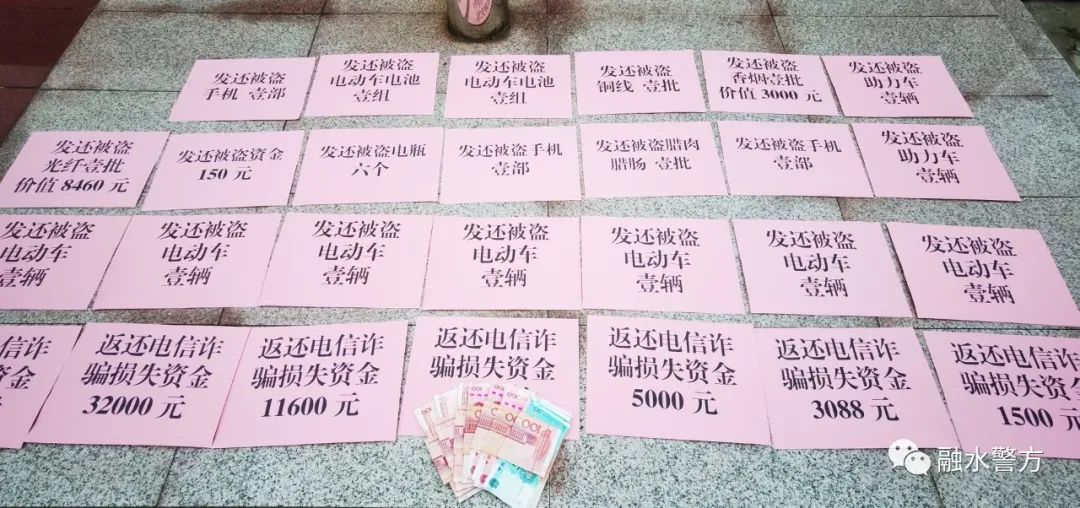 发还被盗
手机 壹部
发还被盗
电动车电池
壹组
发还被盗
电动车电池
壹组
发还被盗
铜线 壹批
发还被盗
香烟壹批
价值 3000 元
发还被盗
助力车
壹辆
发还被盗
光纤壹批
价值 8460 元
发还被盗资金
150 元
发还被盗电瓶
六个
发还被盗手机
壹部
发还被盗腊肉
腊肠 壹批
发还被盗手机
壹部
发还被盗
助力车
壹辆
发还被盗
电动车
壹辆
发还被盗
电动车
壹辆
发还被盗
电动车
壹辆
发还被盗
电动车
壹辆
发还被盗
电动车
壹辆
发还被盗
电动车
壹辆
发还被盗
电动车
壹辆
电信诈
失资金
返还电信诈
骗损失资金
32000 元
返还电信诈
骗损失资金
11600 元
返还电信诈
骗损失资金
返还电信诈
骗损失资金
5000 元
返还电信诈
骗损失资金
3088 元
返还电信诈
骗损失资金
1500 元
100
融水警方